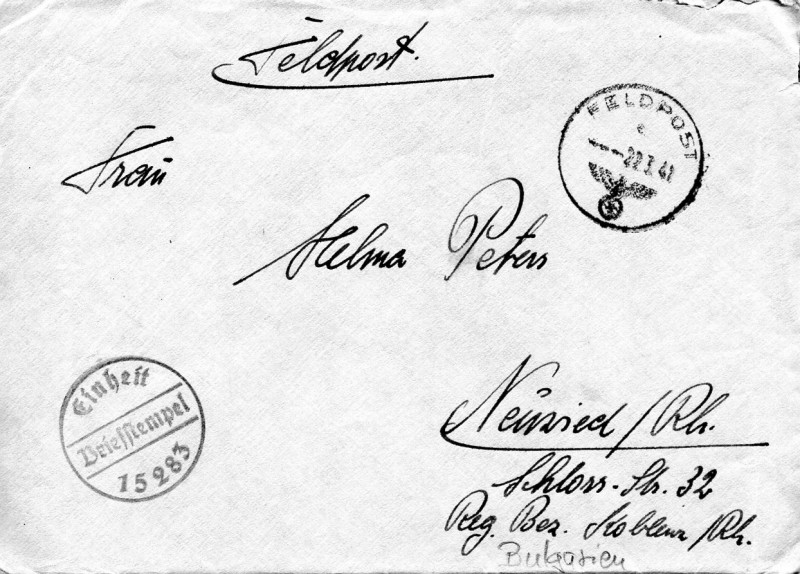 Feldpost.
FELDPOST
c
22.3.41
Frau
Helma Peters
Einheit
Briefstempel
15283
Neuwied/Rh.
Schloss-Str. 32
Reg. Bez. Koblenz/Rh.
Bulgarien